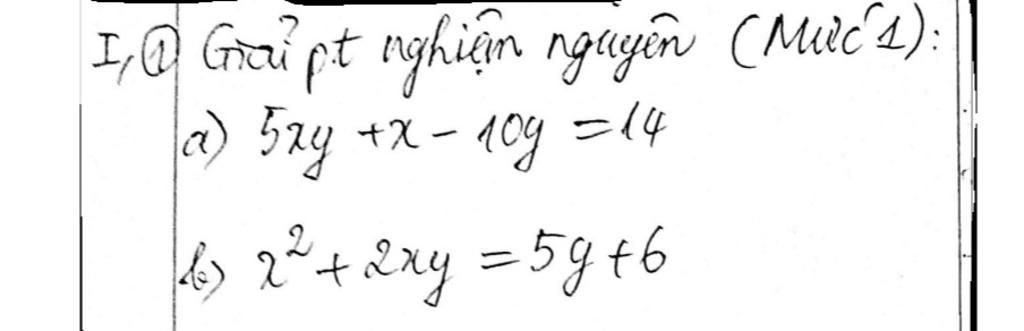 I, ① Giải pt nghiện nguyên (Mức 1):
a) 5xy + x - 10y = 14
b) x² + 2xy = 5y + 6